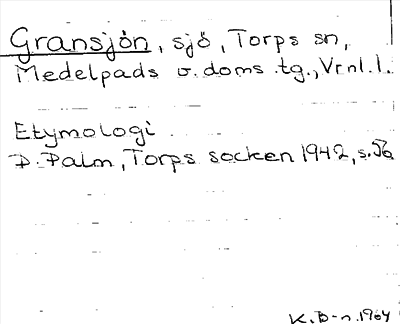 Gransjön, sjö, Torps sn,
Medelpads v. doms.tg., Vrnl. l.
Etymologi
D. Palm, Torps socken 1942, s. 56
K. B-n. 1964